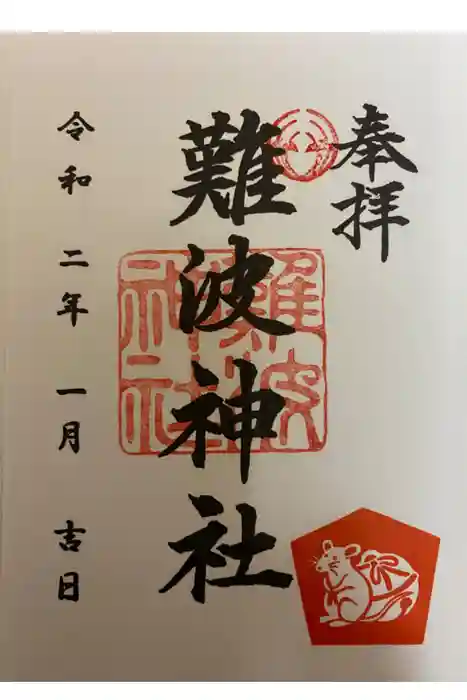 奉拝
難波神社
難波神社
令和 二年 一月 吉日